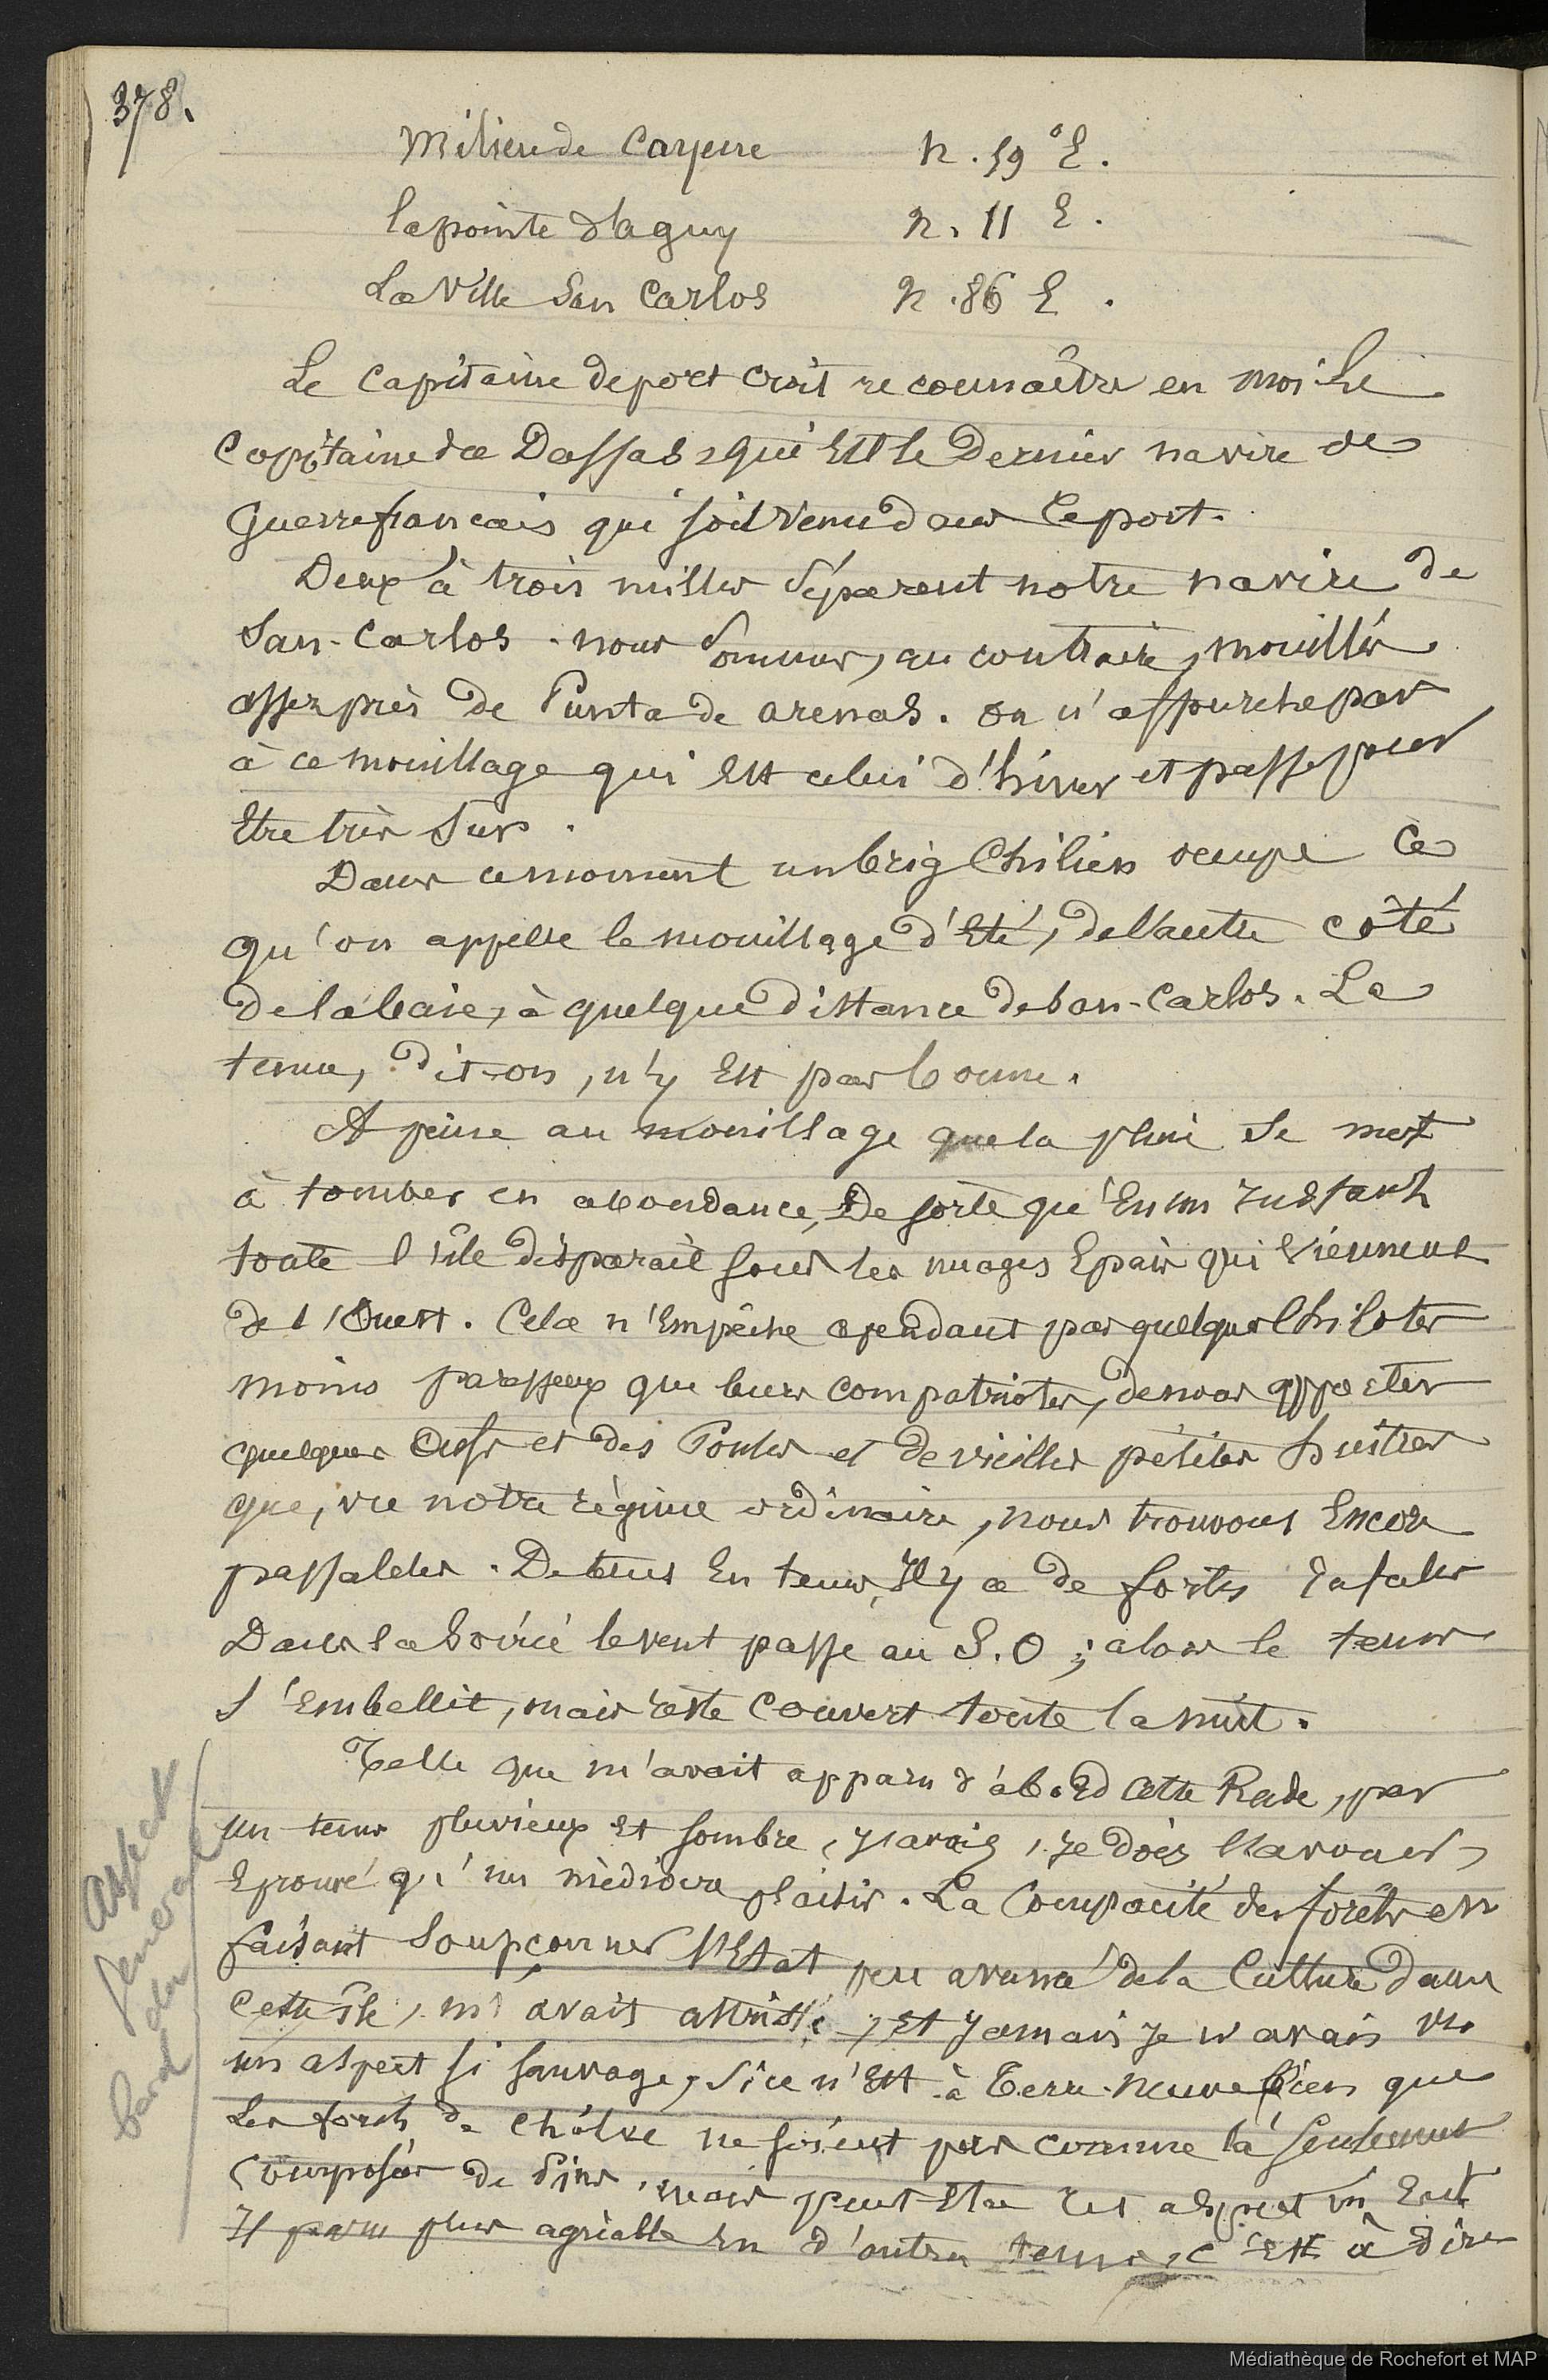 378.
Milieu de Cayene N. 59° E.
la pointe d'aguy N. 11 E.
La Ville San Carlos N. 86 E.
Le Capitaine de port croit reconnaître en moi le
Capitaine da Dassas, qui Est le Dernier navire de
Guerre francais qui soit venu dans le port.
Deux à trois milles séparent notre navire de
San-Carlos. nous sommes, au contraire, mouillés
assez près de Punta de arenas. on n'affourche pas
à ce mouillage qui Est celui d'hiver et passe pour
Etre très sur.
Dans ce moment un brig Chilien occupe ce
qu'on appelle le mouillage d'Eté, de l'autre côté
de la baie, à quelque distance de San-Carlos. La
tenue, dit-on, n'y Est pas bonne.
A peine au mouillage que la pluie se met
à tomber en abondance, De sorte qu'En un Instant
toute l'île disparait sous les nuages Epais qui Viennent
de l'Ouest. Cela n'Empêche cependant pas quelques Chilotes
moins paresseux que leurs compatriotes, de nous apporter
quelques Oeufs et des Poules et de vieilles petites huitres
que, vu notre régime ordinaire, nous trouvons Encore
passables. De tems En tems, Il y a de fortes rafales
Dans la Soirée le vent passe au S.O; alors le tems
s'Embellit, mais reste Couvert toute la nuit.
Telle que m'avait apparu d'abord cette Rade, par
un tems pluvieux Et sombre, J'avais, Je dois l'avouer,
Eprouvé qu'un médiocre plaisir. La Compacité des forêts en
faisant Soupçonner l'Etat peu avancé de la Culture dans
cette île, m'avait attristé, Et Jamais Je n'avais vu
un aspect si sauvage, si ce n'Est à Terre-neuve bien que
Les forets de Chiloe ne soient pas comme là seulement
Composées de Pins, mais peut Etre cet aspect m'Eut
Il paru plus agréable En d'autres tems, c'Est à dire
aspect
General
des
bords
Médiathèque de Rochefort et MAP